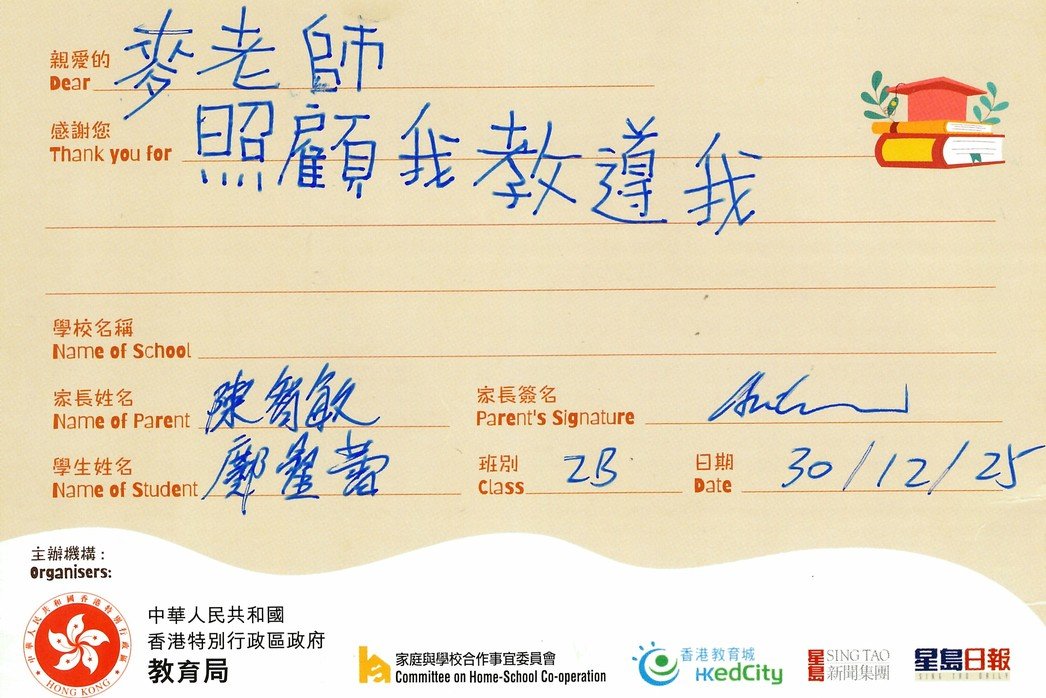 親愛的 麥老師
Dear
感謝您 照顧我教導我
Thank you for
學校名稱
Name of School
家長姓名 陳智敏 家長簽名
Name of Parent Parent's Signature
學生姓名 鄺 班別 2B 日期 30/12/25
Name of Student Class Date
主辦機構：
Organisers:
中華人民共和國香港特別行政區
HONG KONG
中華人民共和國
香港特別行政區政府
教育局
家庭與學校合作事宜委員會
Committee on Home-School Co-operation
香港教育城
HKedCity
星島 SING TAO
新聞集團
星島日報
SING TAO DAILY